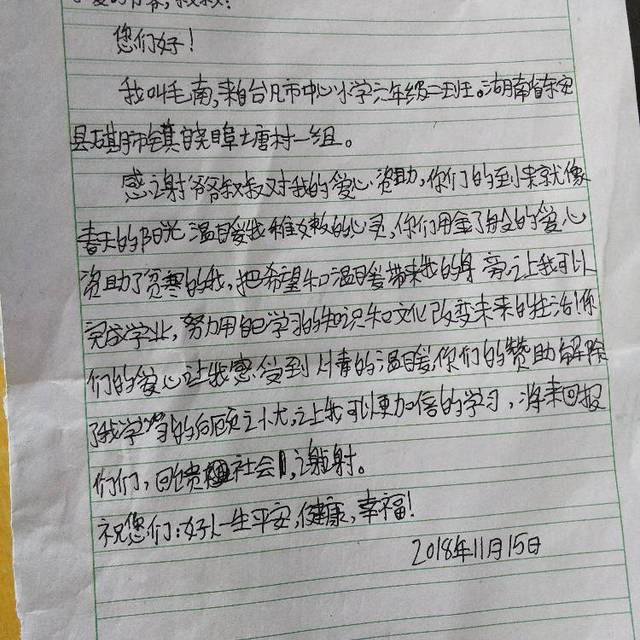 爱的爷爷,叔叔:
您们好!
我叫毛南,来自台凡市中心小学六年级二班。湖南省东安
县横市镇百阜土唐村一组。
感谢爷爷叔叔对我的爱心资助,你们的到来就像
春天的阳光温暖我稚嫩的心灵,你们用金子般的爱心
资助了贫寒的我,把希望和温暖带来我的身旁让我可以
完成学业,努力用自己学习的知识和文化改变未来的生活你
们的爱心让我感受到人情的温暖,你们的赞助解除
了我学习的后顾之忧,让我可以更加倍的学习,将来回报
你们,回馈社会,谢谢。
祝您们:好人一生平安,健康,幸福!
2018年11月15日